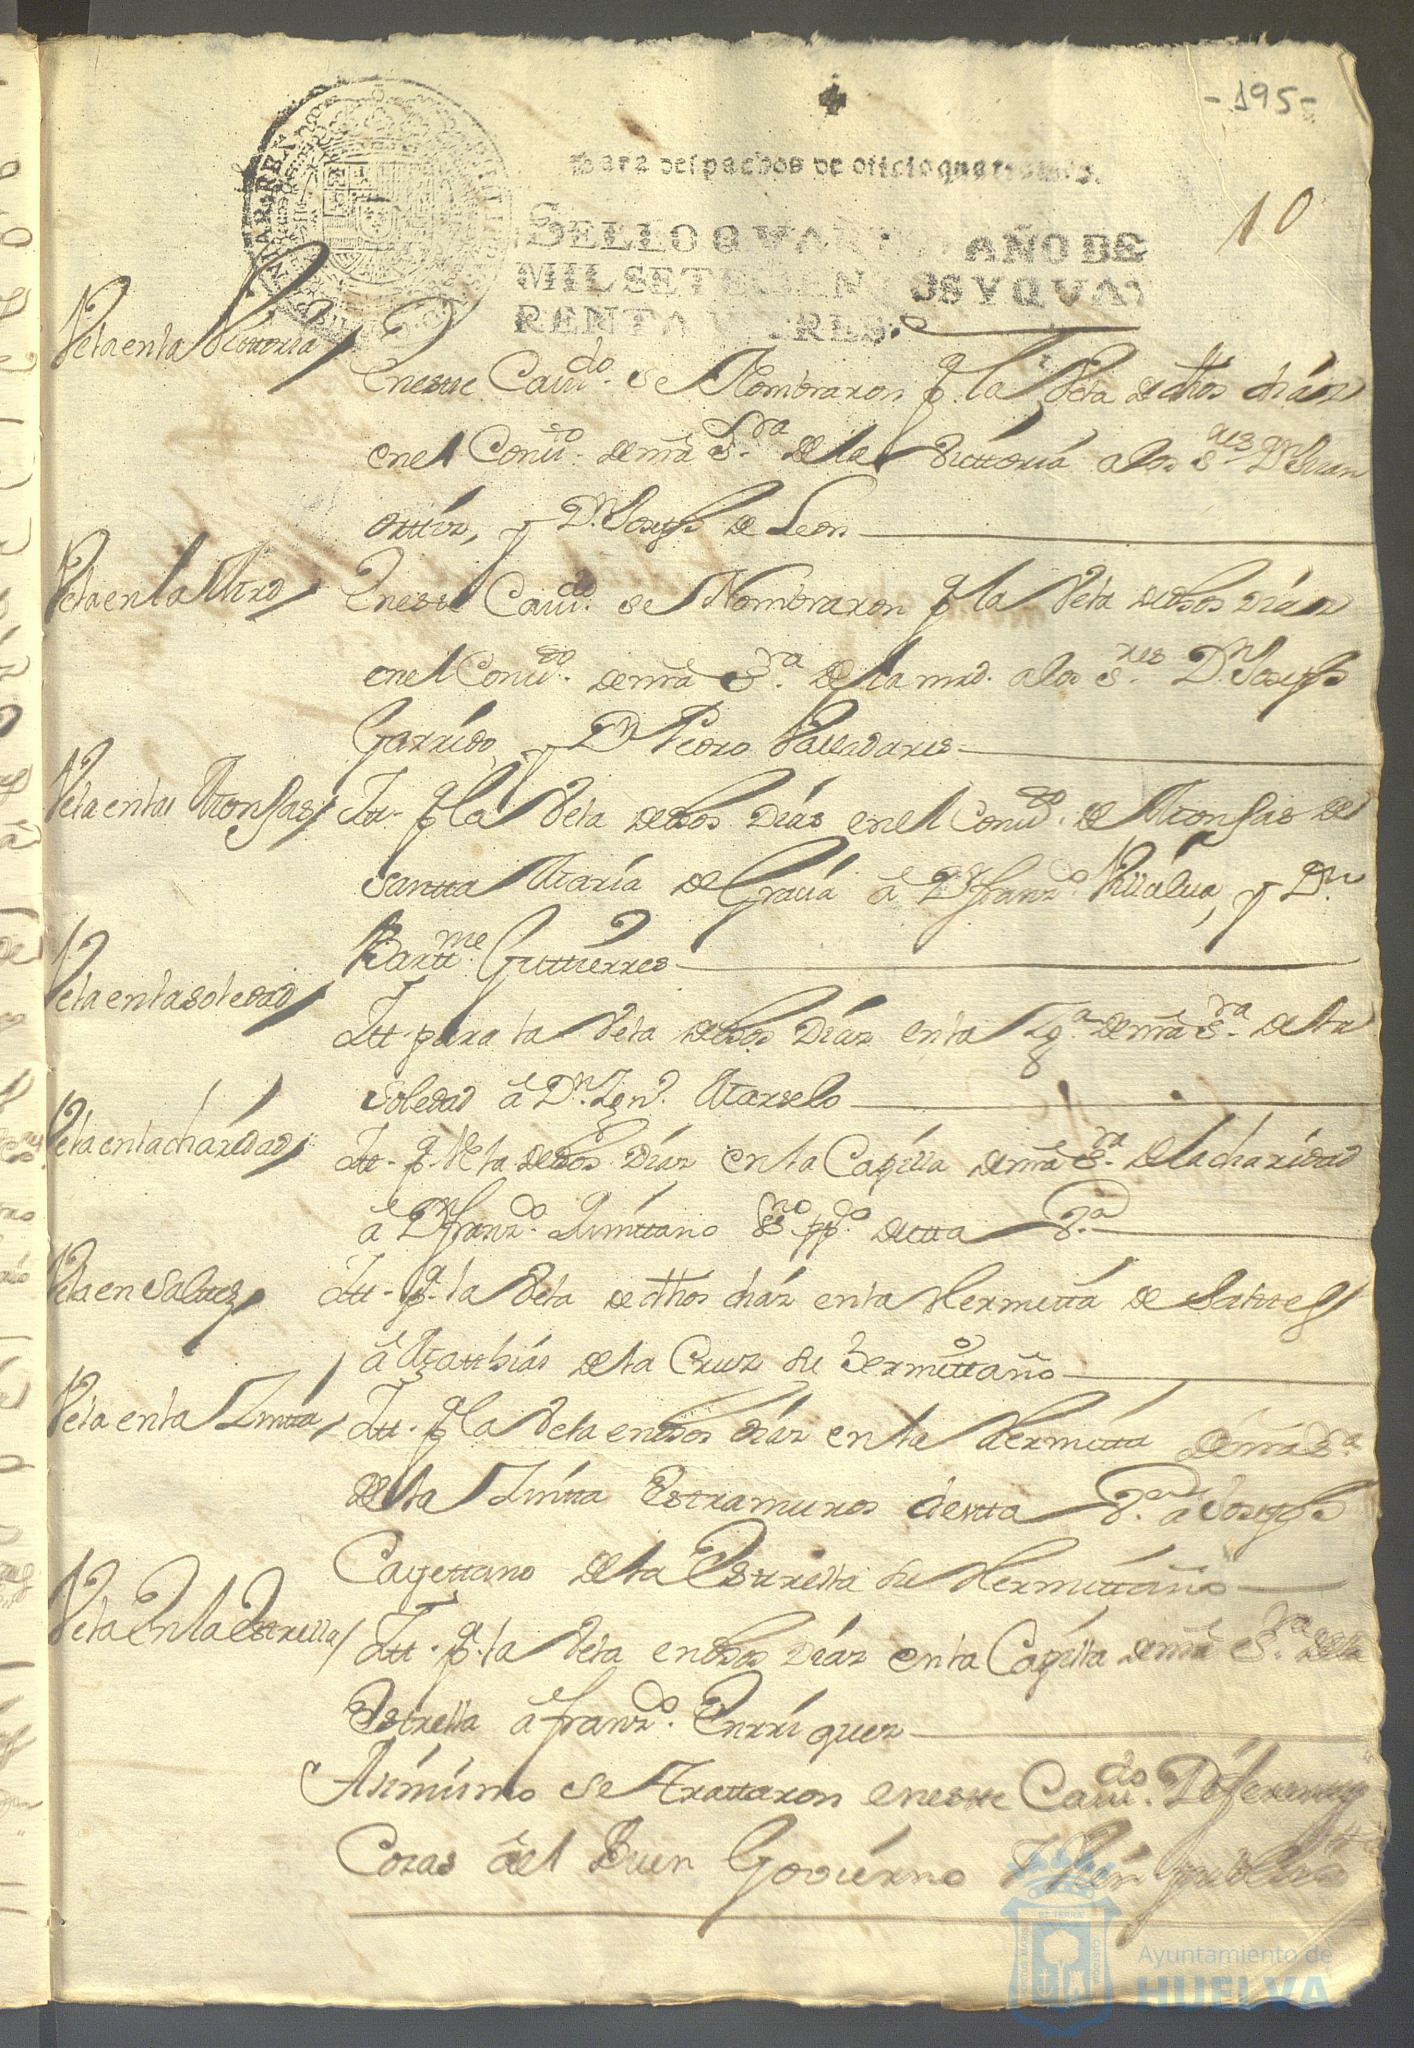 - 195 -
Para despachos de oficio quatro mrs.
10
SELLO QVARTO AÑO DE
MIL SETECIENTOS Y QVA
RENTA Y TRES.
Vela en la Vittoria
En este Cavdo. se Nombraron pa. la Vela de dhos días
en el Convto. de nra Sra. de la Victtoria a los Sres. Dn Juan
orttiz, y Dn. Joseph de Leon
Vela en la Mrzd
En este Cavdo. se Nombraron pa la Vela de dhos Días
en el Convto. de nra Sra. de la mrd. a los Sres. Dn. Joseph
Garrido, y Dn Pedro Valladares
Vela en las Monjas
Itt. pa la Vela de dhos Días en el Convto. de Monjas de
Santta María de Gracia â Dn franzco. , y Dn.
Barttme. Guttierres
Vela en la soledad
Itt. para la Vela de dhos Días en la Iga. de nra Sra. de la
Soledad â Dn. Igno. Marselo
Vela en la charidad
Itt. pa. Vela de dhos Días en la Capilla de nra Sra. de la charidad
â Dn franzco. Quinttano Ssno. ppco. de estta Va.
Vela en Salttes
Itt. pa. la Vela de dthos días en la Hermitta de Salttes
â Matthias de la Cruz su hermittaño
Vela en la Zintta
Itt. pa la Vela en dhos días en la Hermitta de nra Sra.
de la Zintta Extramuros de estta Va. a Joseph
Cayettano de la Estrella su Hermittaño
Vela En la Estrella
Itt. pa. la Vela en dhos Días en la Capilla de nra Sra. de la
Estrella â franzco. Enrríquez
Asimismo se trattaron en este Cavdo. Diferentes
Cozas âel Buen Govierno y Vien publico
Ayuntamiento de
HUELVA